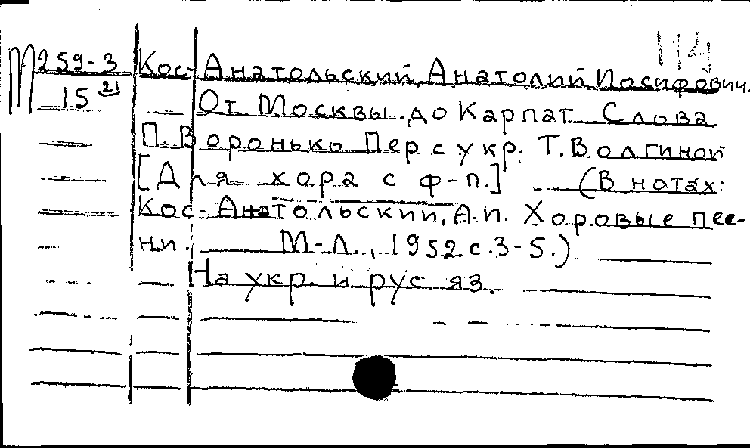 М259-3 Кос-Анатольский, Анатолий Иосифович.
15 21 От Москвы до Карпат Слова
П. Воронько Пер с укр. Т. Волгиной
[Для хора с ф-п.] (В нотах:
Кос-Анатольский, А.И. Хоровые пес-
ни. М-Л., 1952 с. 3-5.)
На укр. и рус яз.